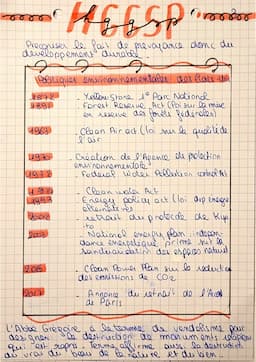 HGGSP
Préconiser le fait de prévoyance donc du
développement durable.
Politiques environnementales des États-U
1872 - Yellowstone 1er Parc National
1891 - Forest Reserve Act (loi sur la mise
en réserve des forêts fédérales)
1963 - Clean Air act (loi sur la qualité de
l'air
- Création de l'Agence de protection
environnementale
- Federal Water Pollution control Act
- Clean water Act
- Energy policy act (loi dvp énergie
alternatives
- retrait du protocole de Kyo
to
- National energy plan : indépen-
dance énergétique prime sur la
sanctuarisation des espaces naturels
2015 - Clean Power Plan sur la réduction
des émissions de CO2
2017 - Annonce du retrait de l'Accord
de Paris
L'Abbé Grégoire a le terme de vandalisme pour
désigner la destruction de monuments
qui "est sapé" terme affirme aussi la destruction
du vrai du beau de la nature et du bien.